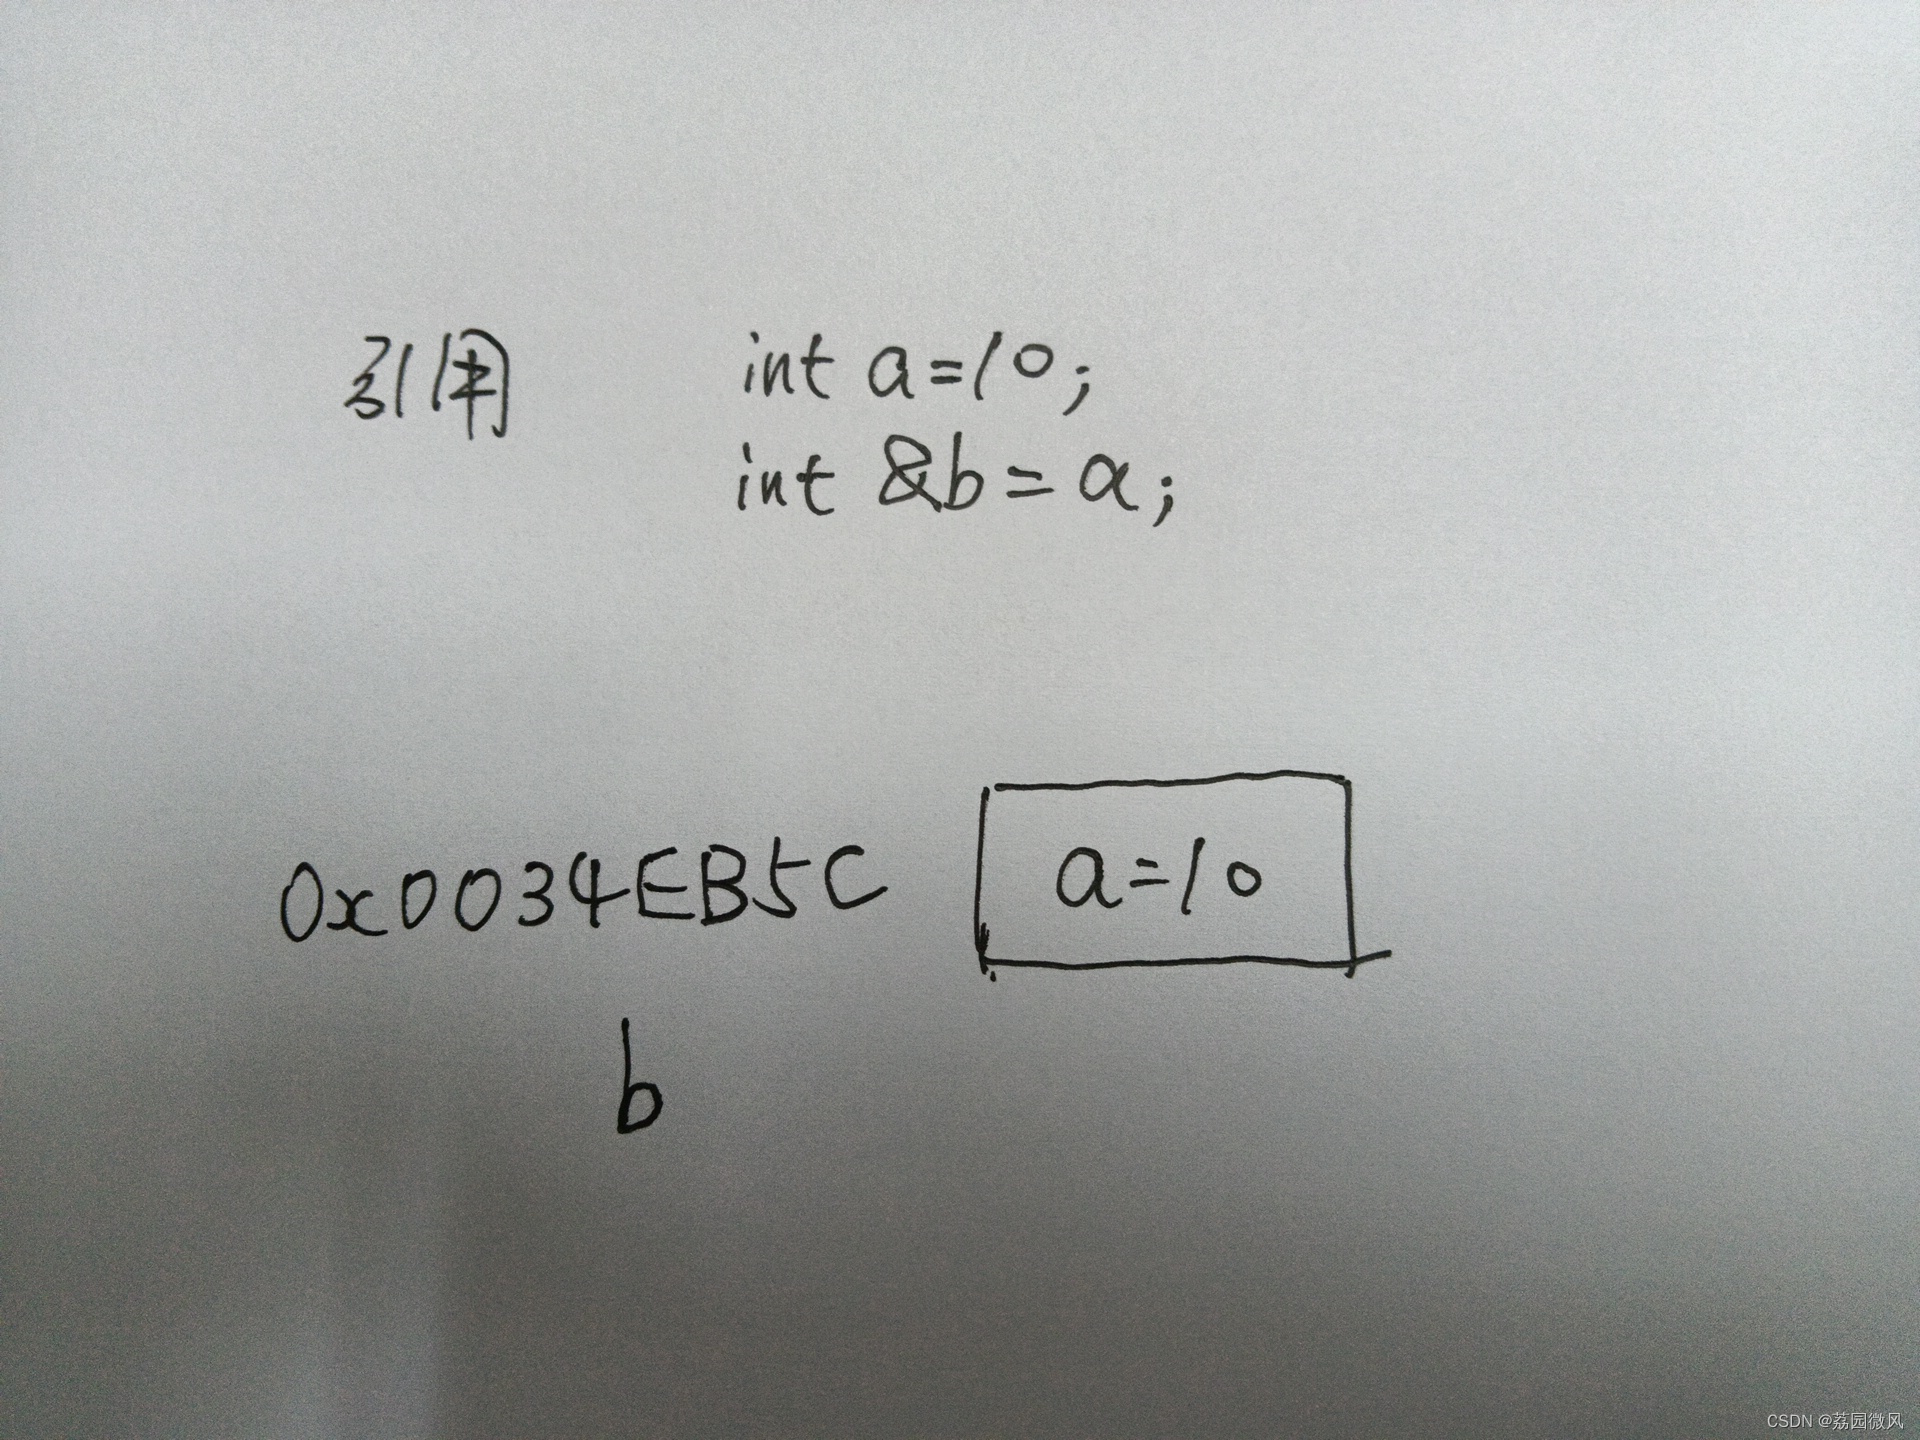 引用 int a=10;
int &b=a;
0x0034EB5C a=10
b
CSDN @荔园微风